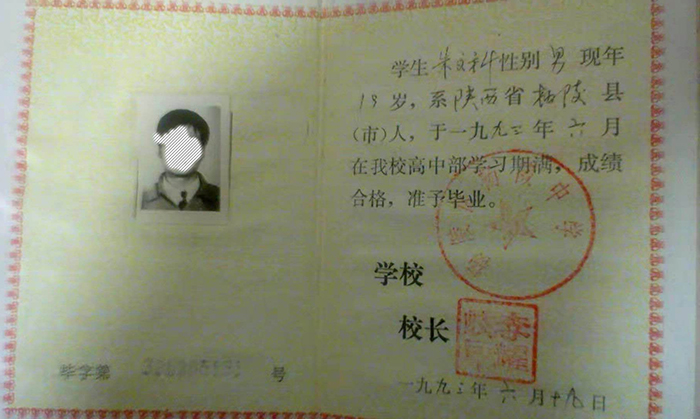 学生 朱文科 性别 男 现年
19岁，系陕西省 县
(市)人，于一九九三年六月
在我校高中部学习期满，成绩
合格，准予毕业。
中学
学校
校长
毕字第 号
一九九三年六月十九日